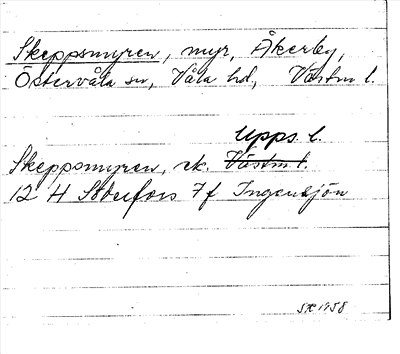 Skeppsmyren, myr, Åkerby,
Östervåla sn, Våla hd, Västm l.
Upps. l.
Skeppsmyren, ek. Västm l.
12 H Söderfors 7 f Ingensjön
SK 1958